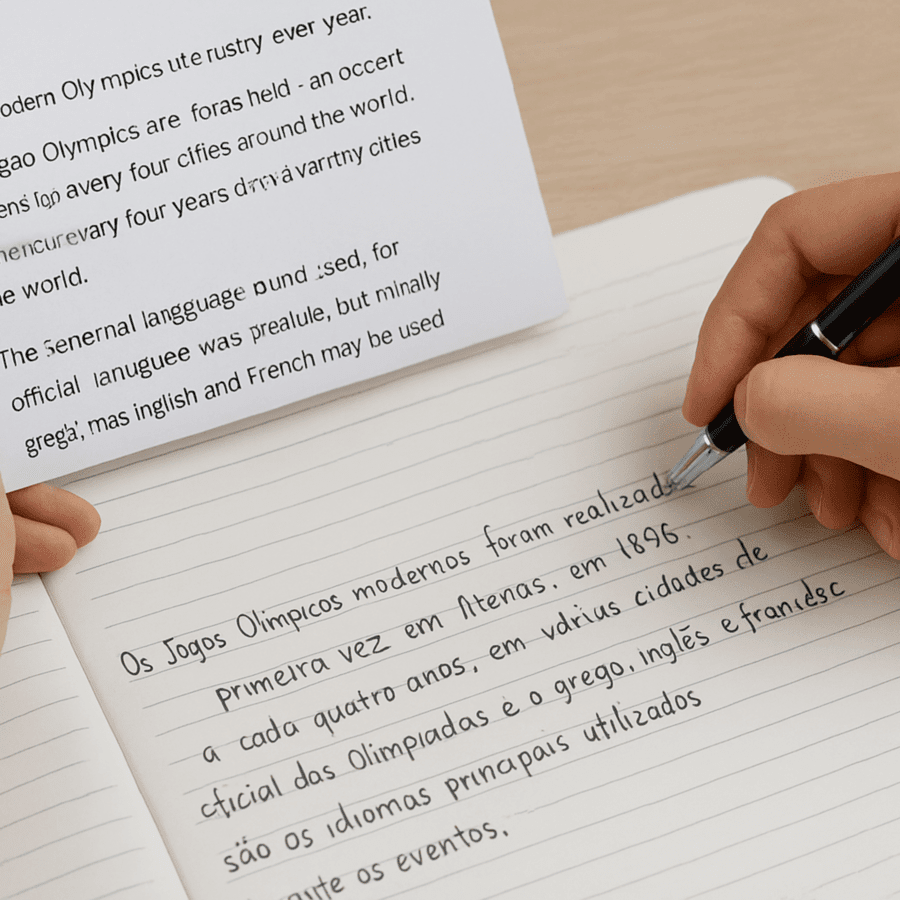 odern Olympics ute rustry ever year.
gao Olympics are foras held - an occert
ens avery four cifies around the world.
four years varrtny cities
e world.
The Senernal langguage ound :sed, for
official lanuguee was prealule, but minally
grega', mas inglish and French may be used
Os Jogos Olimpicos modernos foram realizad
primeira vez em Atenas. em 1896.
a cada quatro anos, em várius cidades de
cficial das Olimpiadas e o grego, inglês e
são os idiomas principais utilizados
os eventos.